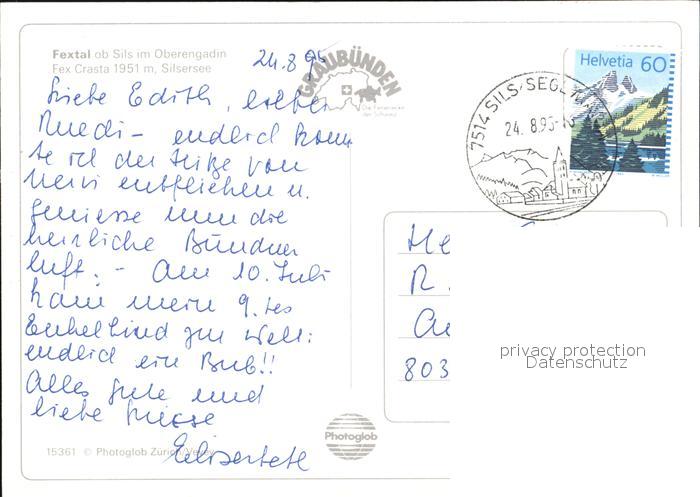 Fextal ob Sils im Oberengadin
Fex Crasta 1951 m, Silsersee
24.8.95
GRAUBÜNDEN
Die Ferienecke
der Schweiz
Liebe Edith, lieber
Ruedi - endlich konn
te ich der Hitze von
Nervi entfliehen u.
geniesse nun die
herrliche Bündner
luft. - Am 10. Juli
kam mein 9. tes
Enkelkind zur Welt:
endlich ein Bub!!
Alles gute und
liebe Grüsse
Elisabeth
15361 © Photoglob Zürich/Vevey
Photoglob
7514 SILS/SEGL
24.8.95
Helvetia 60
He
R.
803
privacy protection
Datenschutz